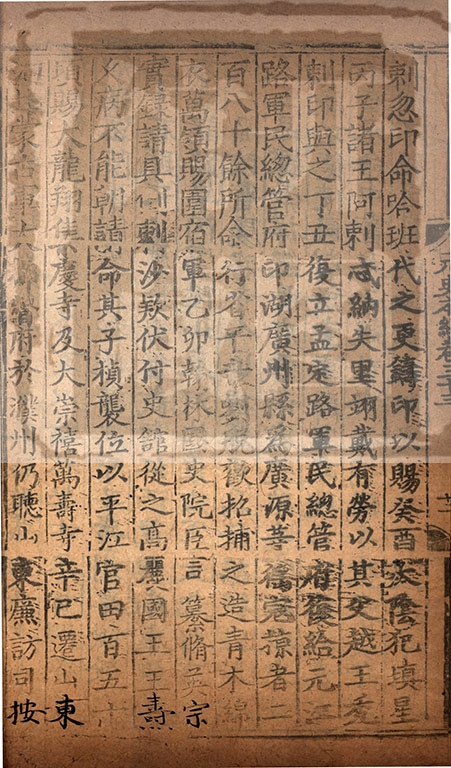 剌忽印命哈班代之更鑄印以賜癸酉太陰犯填星
丙子諸王阿剌忒納失里翊戴有勞以其父越王禿
剌印與之丁丑復立孟定路軍民總管府復給元江
路軍民總管府印湖廣州縣爲廣源等猺寇掠者二
百八十餘所命行省平章劉脫歡招捕之造青木綿
衣萬領賜圍宿軍乙卯翰林國史院臣言纂脩英宗
實録請具倒剌沙欵伏付史館從之高麗國王王燾
久病不能朝請命其子楨襲位以平江官田百五十
頃賜大龍翔集慶寺及大崇禧萬壽寺辛巳遷山東
河北蒙古軍大都督府於濮州仍聽山東廉訪司按